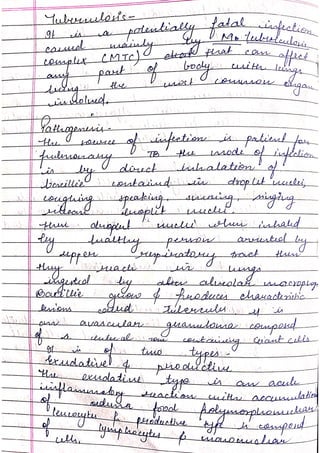 Tuberculosis -
It is a potentially fatal infection
caused mainly by M. Tuberculosis
complex (MTC) that can affect
any part of body with lungs
being the most common organ
involved.
Pathogenesis -
The source of infection is patient for
pulmonary TB the mode of infection
is by direct inhalation of
bacilli contained in droplet nuclei,
coughing speaking, singing
droplet nuclei.
nuclei when inhaled
by healthy person arrested by
upper respiratory tract then
they reach in lungs
ingested by alveolar macrophage
Bacilli grows & produces characteristic
lesions called Tubercule it is
an avascular granuloma compond
of a central containing Giant cells
It is of two types -
Exudative & productive
The exudative type is an acute
inflammatory reaction with accumulation
of edema polymorphonuclear
leucocyte & productive type is compond
of lymphocytes &
cells.